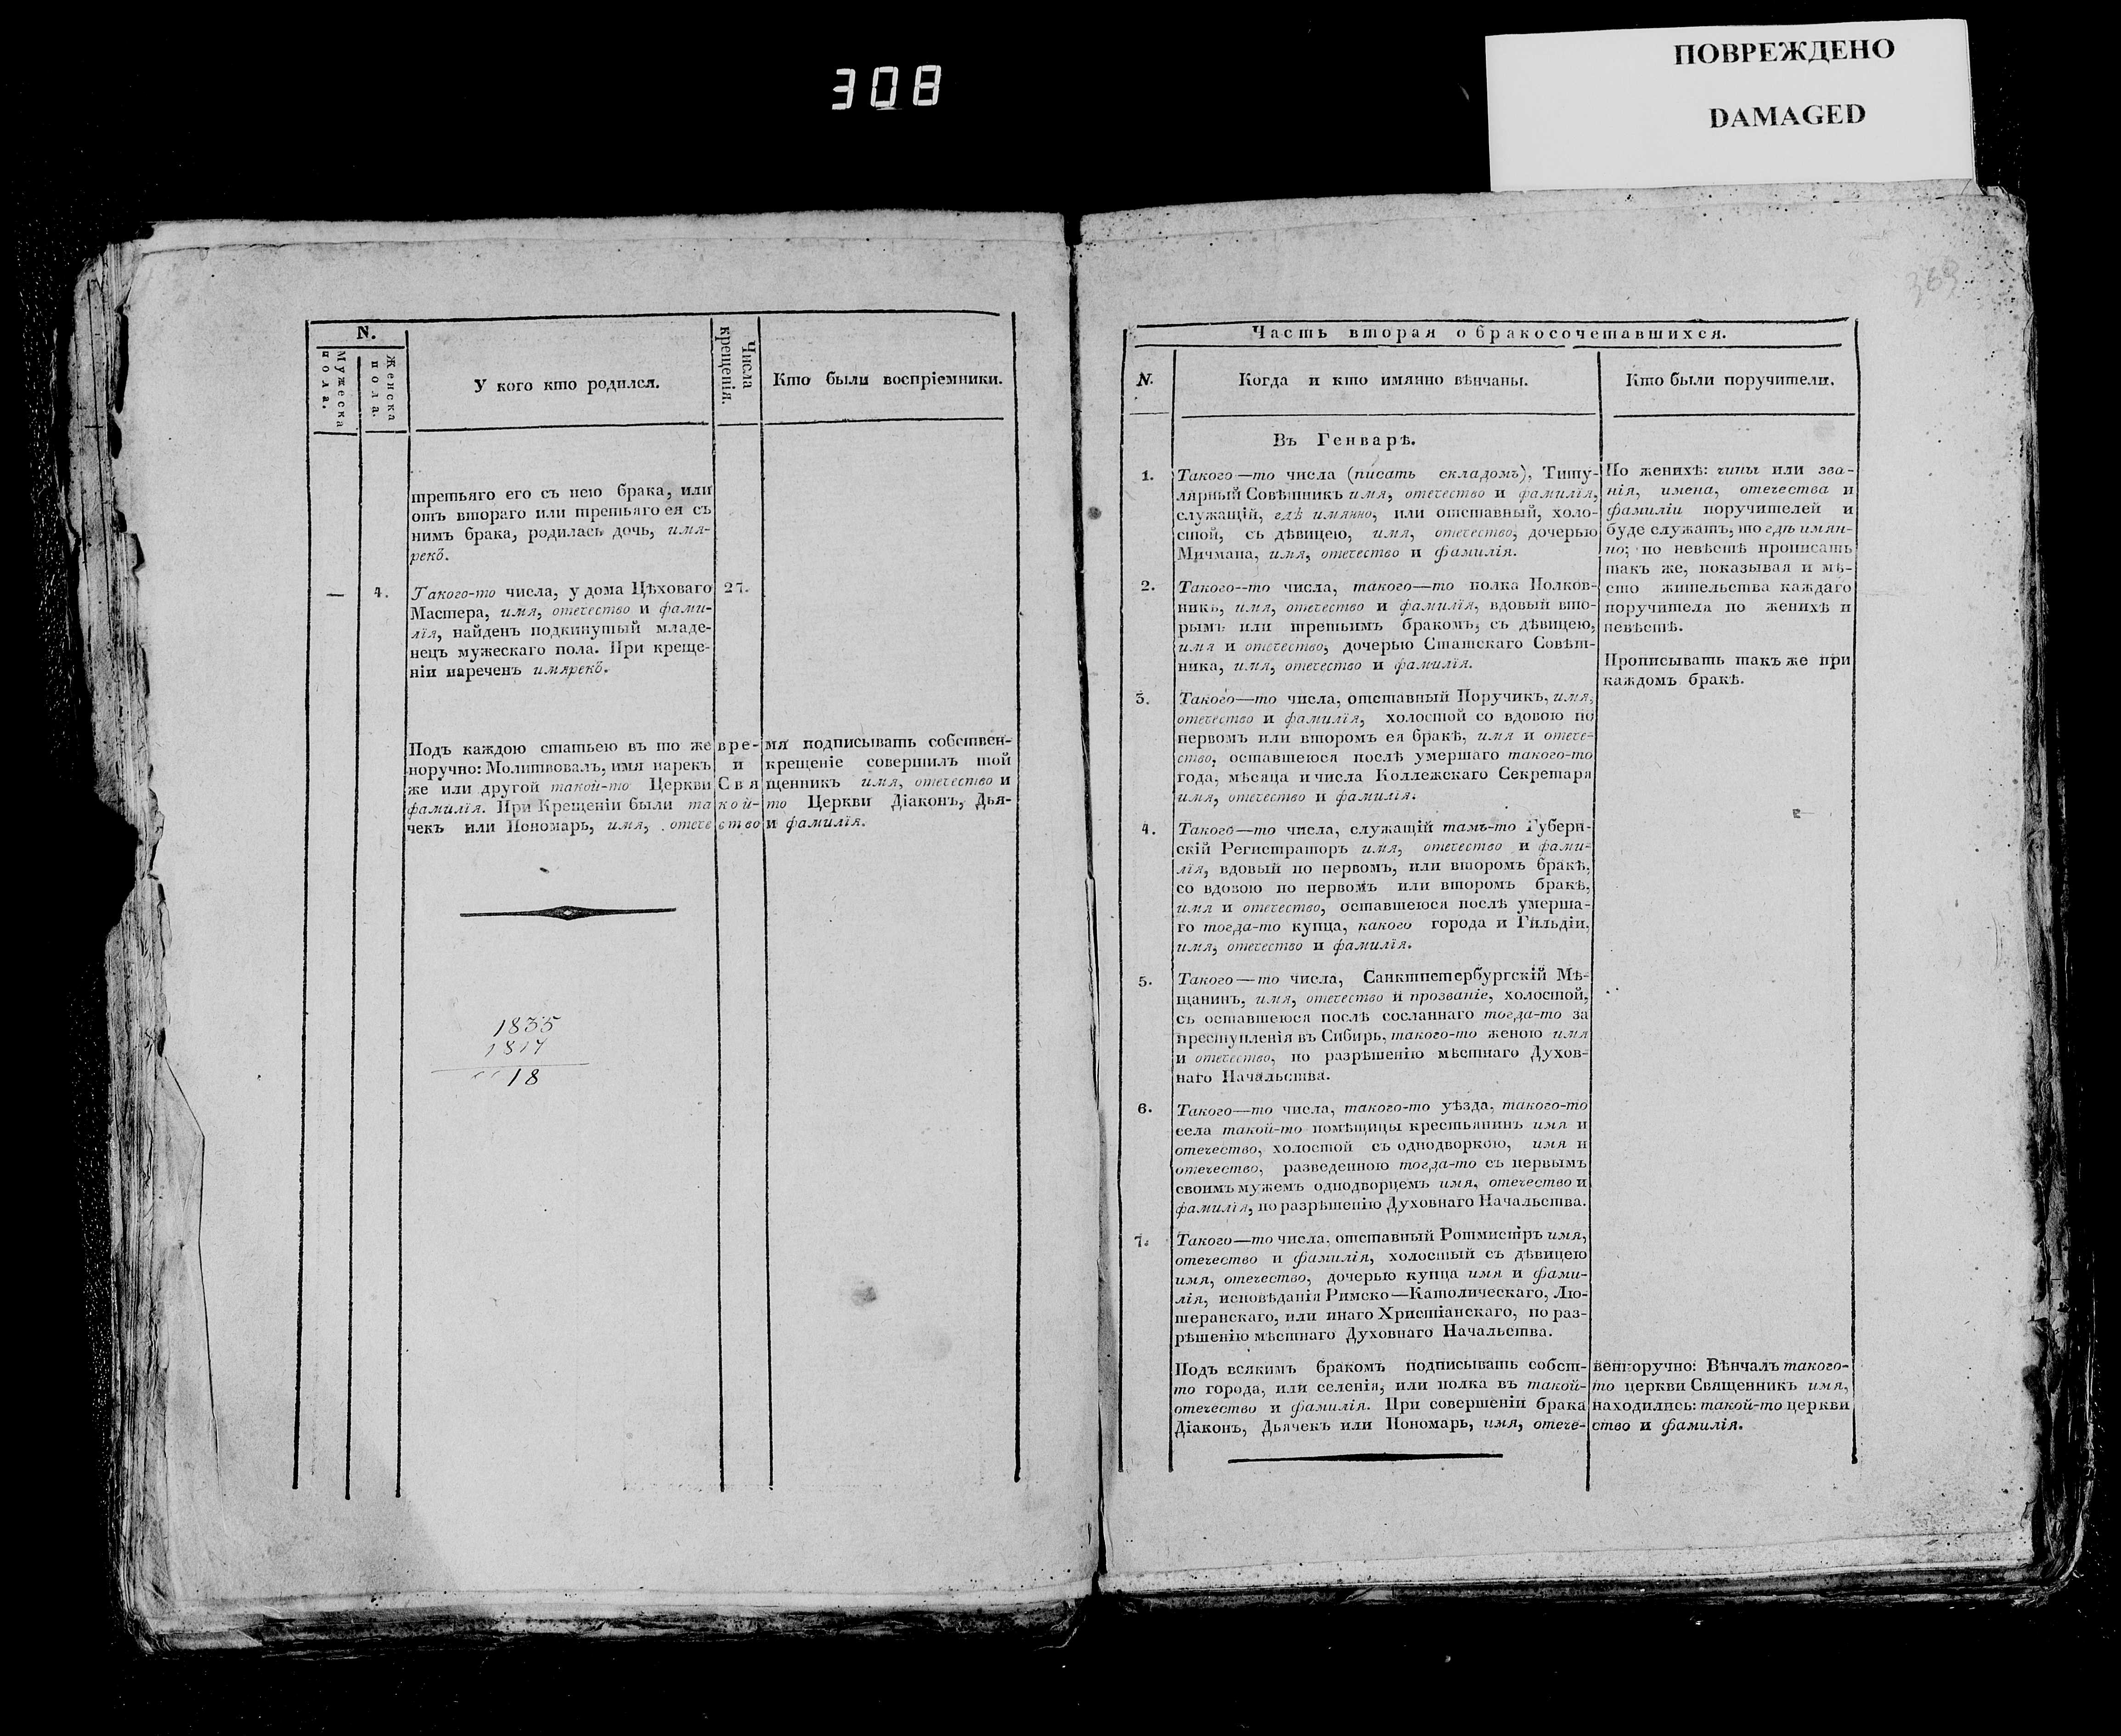 308
ПОВРЕЖДЕНО
DAMAGED
N.
Мужеска пола.
Женска пола.
У кого кто родился.
Числа крещенія.
Кто были воспріемники.
третьяго его съ нею брака, или
отъ втораго или третьяго ея съ
нимъ брака, родилась дочь, имя-
рекъ.
— 4. Такого-то числа, у дома Цѣховаго 27.
Мастера, имя, отечество и фами-
лія, найденъ подкинутый младе-
нецъ мужескаго пола. При креще-
ніи нареченъ имярекъ.
Подъ каждою статьею въ то же вре- мя подписывать собствен-
норучно: Молитвовалъ, имя нарекъ и крещеніе совершилъ той
же или другой такой-то Церкви Свя щенникъ имя, отечество и
фамилія. При Крещеніи были та кой- то Церкви Діаконъ, Дья-
чекъ или Пономарь, имя, отече ство и фамилія.
1835
1817
18
369
Часть вторая о бракосочетавшихся.
N.
Когда и кто имянно вѣнчаны.
Кто были поручители.
Въ Генварѣ.
1. Такого—то числа (писать складомъ), Титу-
лярный Совѣтникъ имя, отечество и фамилія,
служащій, гдѣ имянно, или отставный, холо-
стой, съ дѣвицею, имя, отечество, дочерью
Мичмана, имя, отечество и фамилія.
2. Такого--то числа, такого—то полка Полков-
никъ, имя, отечество и фамилія, вдовый вто-
рымъ или третьимъ бракомъ, съ дѣвицею,
имя и отечество, дочерью Статскаго Совѣт-
ника, имя, отечество и фамилія.
3. Такого—то числа, отставный Поручикъ, имя,
отечество и фамилія, холостой со вдовою по
первомъ или второмъ ея бракѣ, имя и отече-
ство, оставшеюся послѣ умершаго такого-то
года, мѣсяца и числа Коллежскаго Секретаря
имя, отечество и фамилія.
4. Такого—то числа, служащій тамъ-то Губерн-
скій Регистраторъ имя, отечество и фами-
лія, вдовый по первомъ, или второмъ бракѣ,
со вдовою по первомъ или второмъ бракѣ,
имя и отечество, оставшеюся послѣ умерша-
го тогда-то купца, какого города и Гильдіи,
имя, отечество и фамилія.
5. Такого—то числа, Санктпетербургскій Мѣ-
щанинъ, имя, отечество и прозваніе, холостой,
съ оставшеюся послѣ сосланнаго тогда-то за
преступленія въ Сибирь, такого-то женою имя
и отечество, по разрѣшенію мѣстнаго Духов-
наго Начальства.
6. Такого—то числа, такого-то уѣзда, такого-то
села такой-то помѣщицы крестьянинъ имя и
отечество, холостой съ однодворкою, имя и
отечество, разведенною тогда-то съ первымъ
своимъ мужемъ однодворцемъ имя, отечество и
фамилія, по разрѣшенію Духовнаго Начальства.
7. Такого—то числа, отставный Ротмистръ имя,
отечество и фамилія, холостый съ дѣвицею
имя, отечество, дочерью купца имя и фами-
лія, исповѣданія Римско—Католическаго, Лю-
теранскаго, или инаго Христіанскаго, по раз-
рѣшенію мѣстнаго Духовнаго Начальства.
По женихѣ: чины или зва-
нія, имена, отечества и
фамиліи поручителей и
буде служатъ, то гдѣ имян-
но; по невѣстѣ прописать
такъ же, показывая и мѣ-
сто жительства каждаго
поручителя по женихѣ и
невѣстѣ.
Прописывать такъ же при
каждомъ бракѣ.
Подъ всякимъ бракомъ подписывать собст- венноручно: Вѣнчалъ такого-
то города, или селенія, или полка въ такой- то церкви Священникъ имя,
отечество и фамилія. При совершеніи брака находились: такой-то церкви
Діаконъ, Дьячекъ или Пономарь, имя, отече- ство и фамилія.